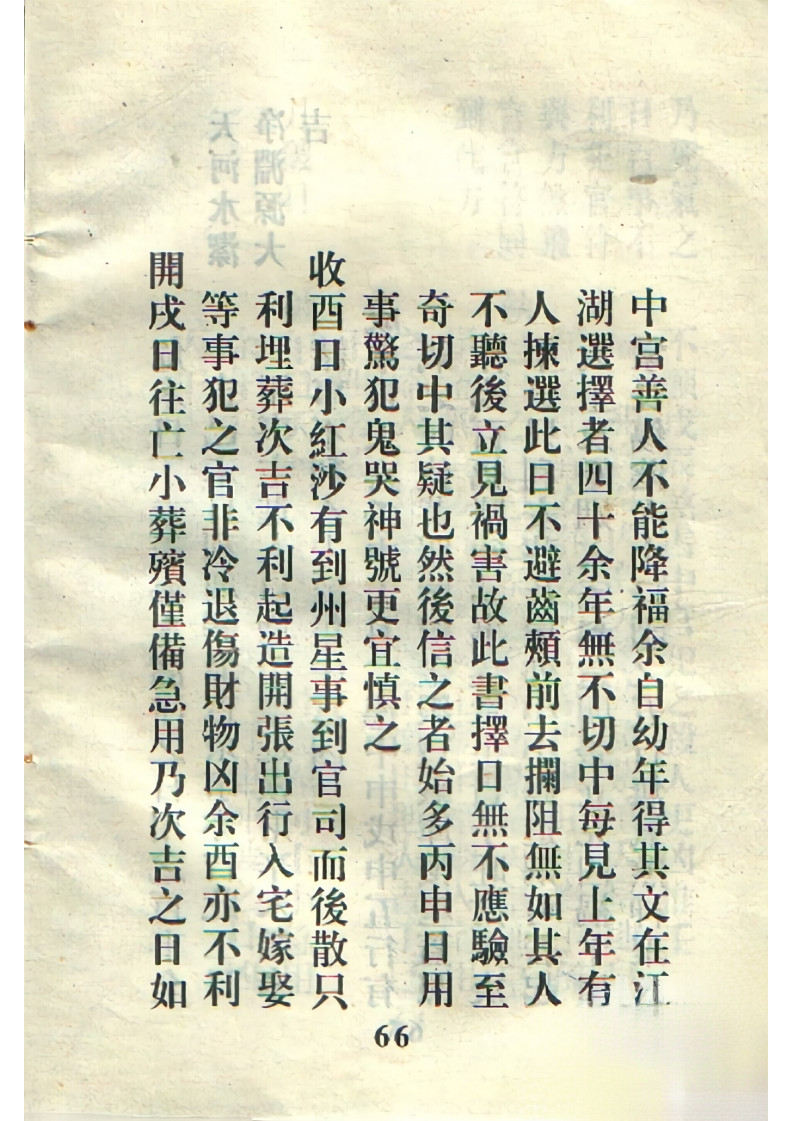 中宮善人不能降福余自幼年得其文在江
湖選擇者四十余年無不切中每見上年有
人揀選此日不避齒頰前去攔阻無如其人
不聽後立見禍害故此書擇日無不應驗至
奇切中其疑也然後信之者始多丙申日用
事驚犯鬼哭神號更宜慎之
收酉日小紅沙有到州星事到官司而後散只
利埋葬次吉不利起造開張出行入宅嫁娶
等事犯之官非冷退傷財物凶余酉亦不利
開戌日往亡小葬殯僅備急用乃次吉之日如
66